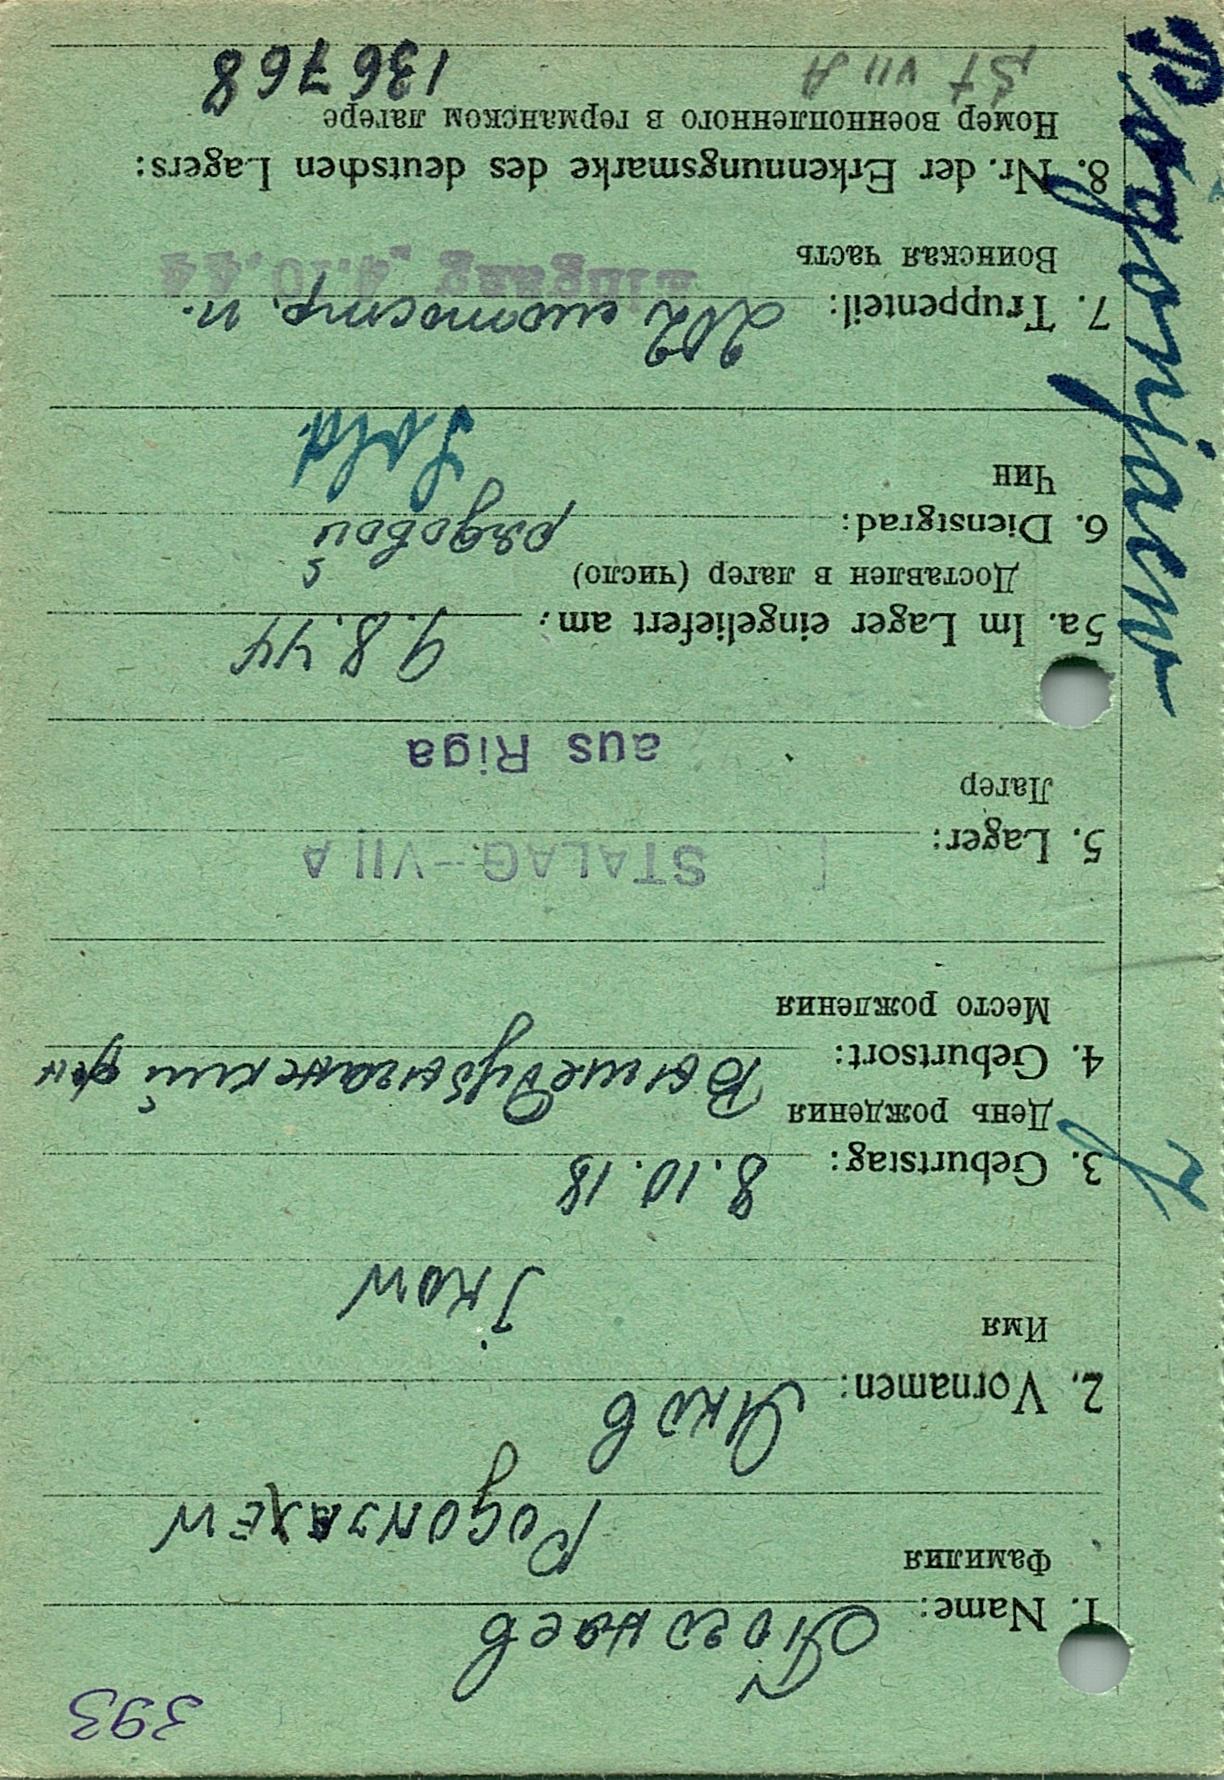 393
1. Name:
Фамилия
Pogonjajew
2. Vornamen: Яков
Имя
Jkow
3. Geburtstag: 8.10.18
День рождения
4. Geburtsort:
Место рождения
5. Lager: STALAG-VII A
Лагер
aus Riga
5a. Im Lager eingeliefert am: 9.8.44
Доставлен в лагер (число)
6. Dienstgrad: рядовой
Чин
Sold.
7. Truppenteil: 202
Воинская часть
Eingang 4.10.44
8. Nr. der Erkennungsmarke des deutschen Lagers:
Номер военнопленного в германском лагере
St VII A 136768
Pogonjaew